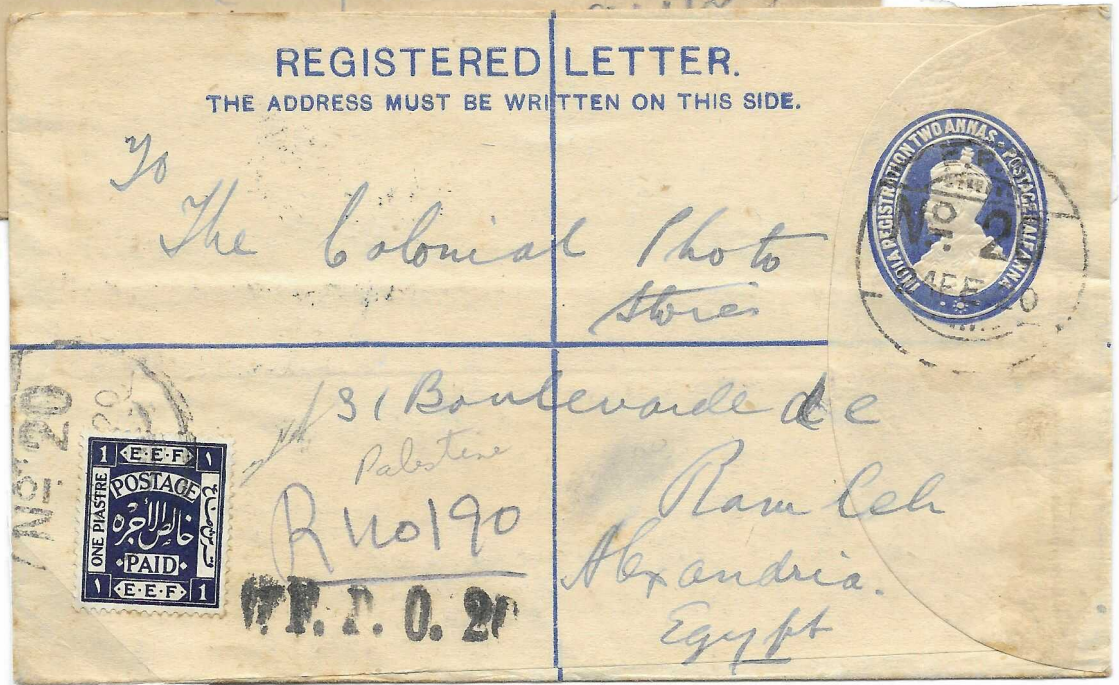 REGISTERED LETTER.
THE ADDRESS MUST BE WRITTEN ON THIS SIDE.
INDIA REGISTRATION TWO ANNAS. POSTAGE HALF ANNA
To
The Colonial Photo
Stores
31 Boulevarde de
Palestine
Ramleh
R No 190
Alexandria.
Egypt
F. P. O. 20
No 20
1 E·E·F ١
POSTAGE
ONE PIASTRE
خالص الأجرة
PAID
١ E·E·F 1